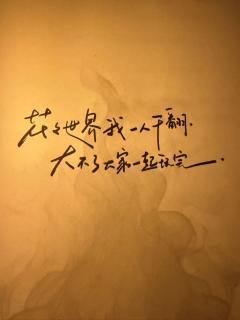 花花世界我一人千翻.
大不了大家一起玩完.